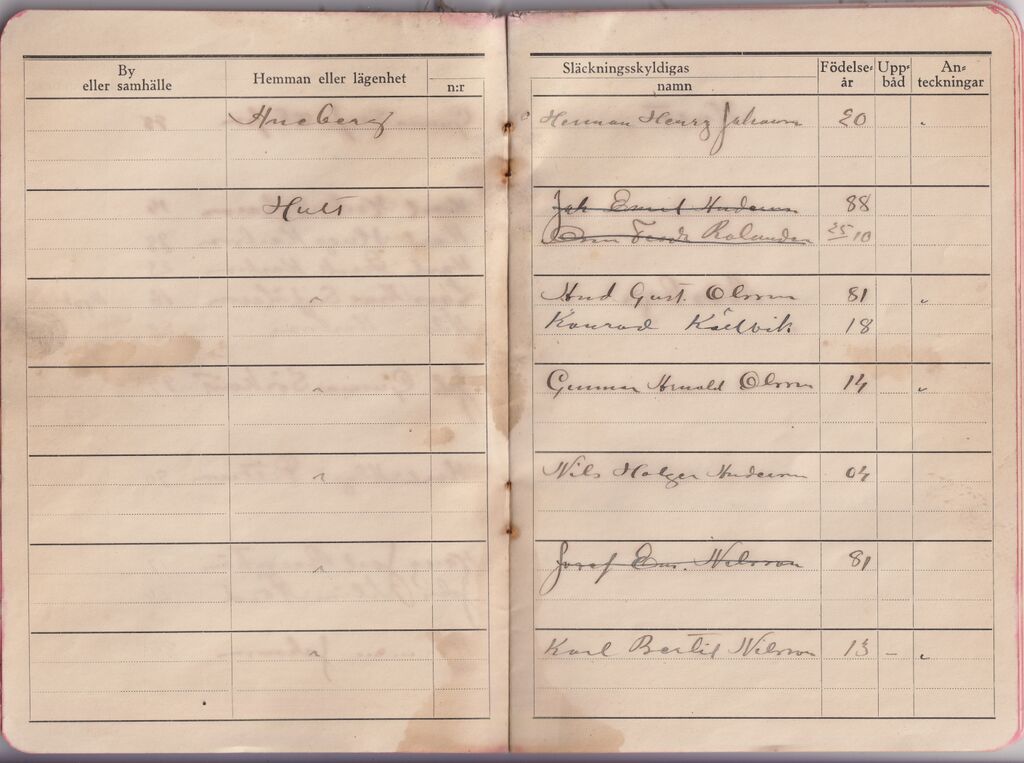 By
eller samhälle
Hemman eller lägenhet
n:r
Släckningsskyldigas
namn
Födelse-
år
Upp-
båd
An-
teckningar
Herman Henry Johansson 20 "
Hult
Joh Emil Anderson 88
Rolander 25 10
" And Gust. Olsson 81 "
Konrad Källvik 18
" Gunnar Arnold Olsson 14 "
" Nils Holger Anderson 04
" Josef Em. Nilsson 81
" Karl Bertil Nilsson 13 – "